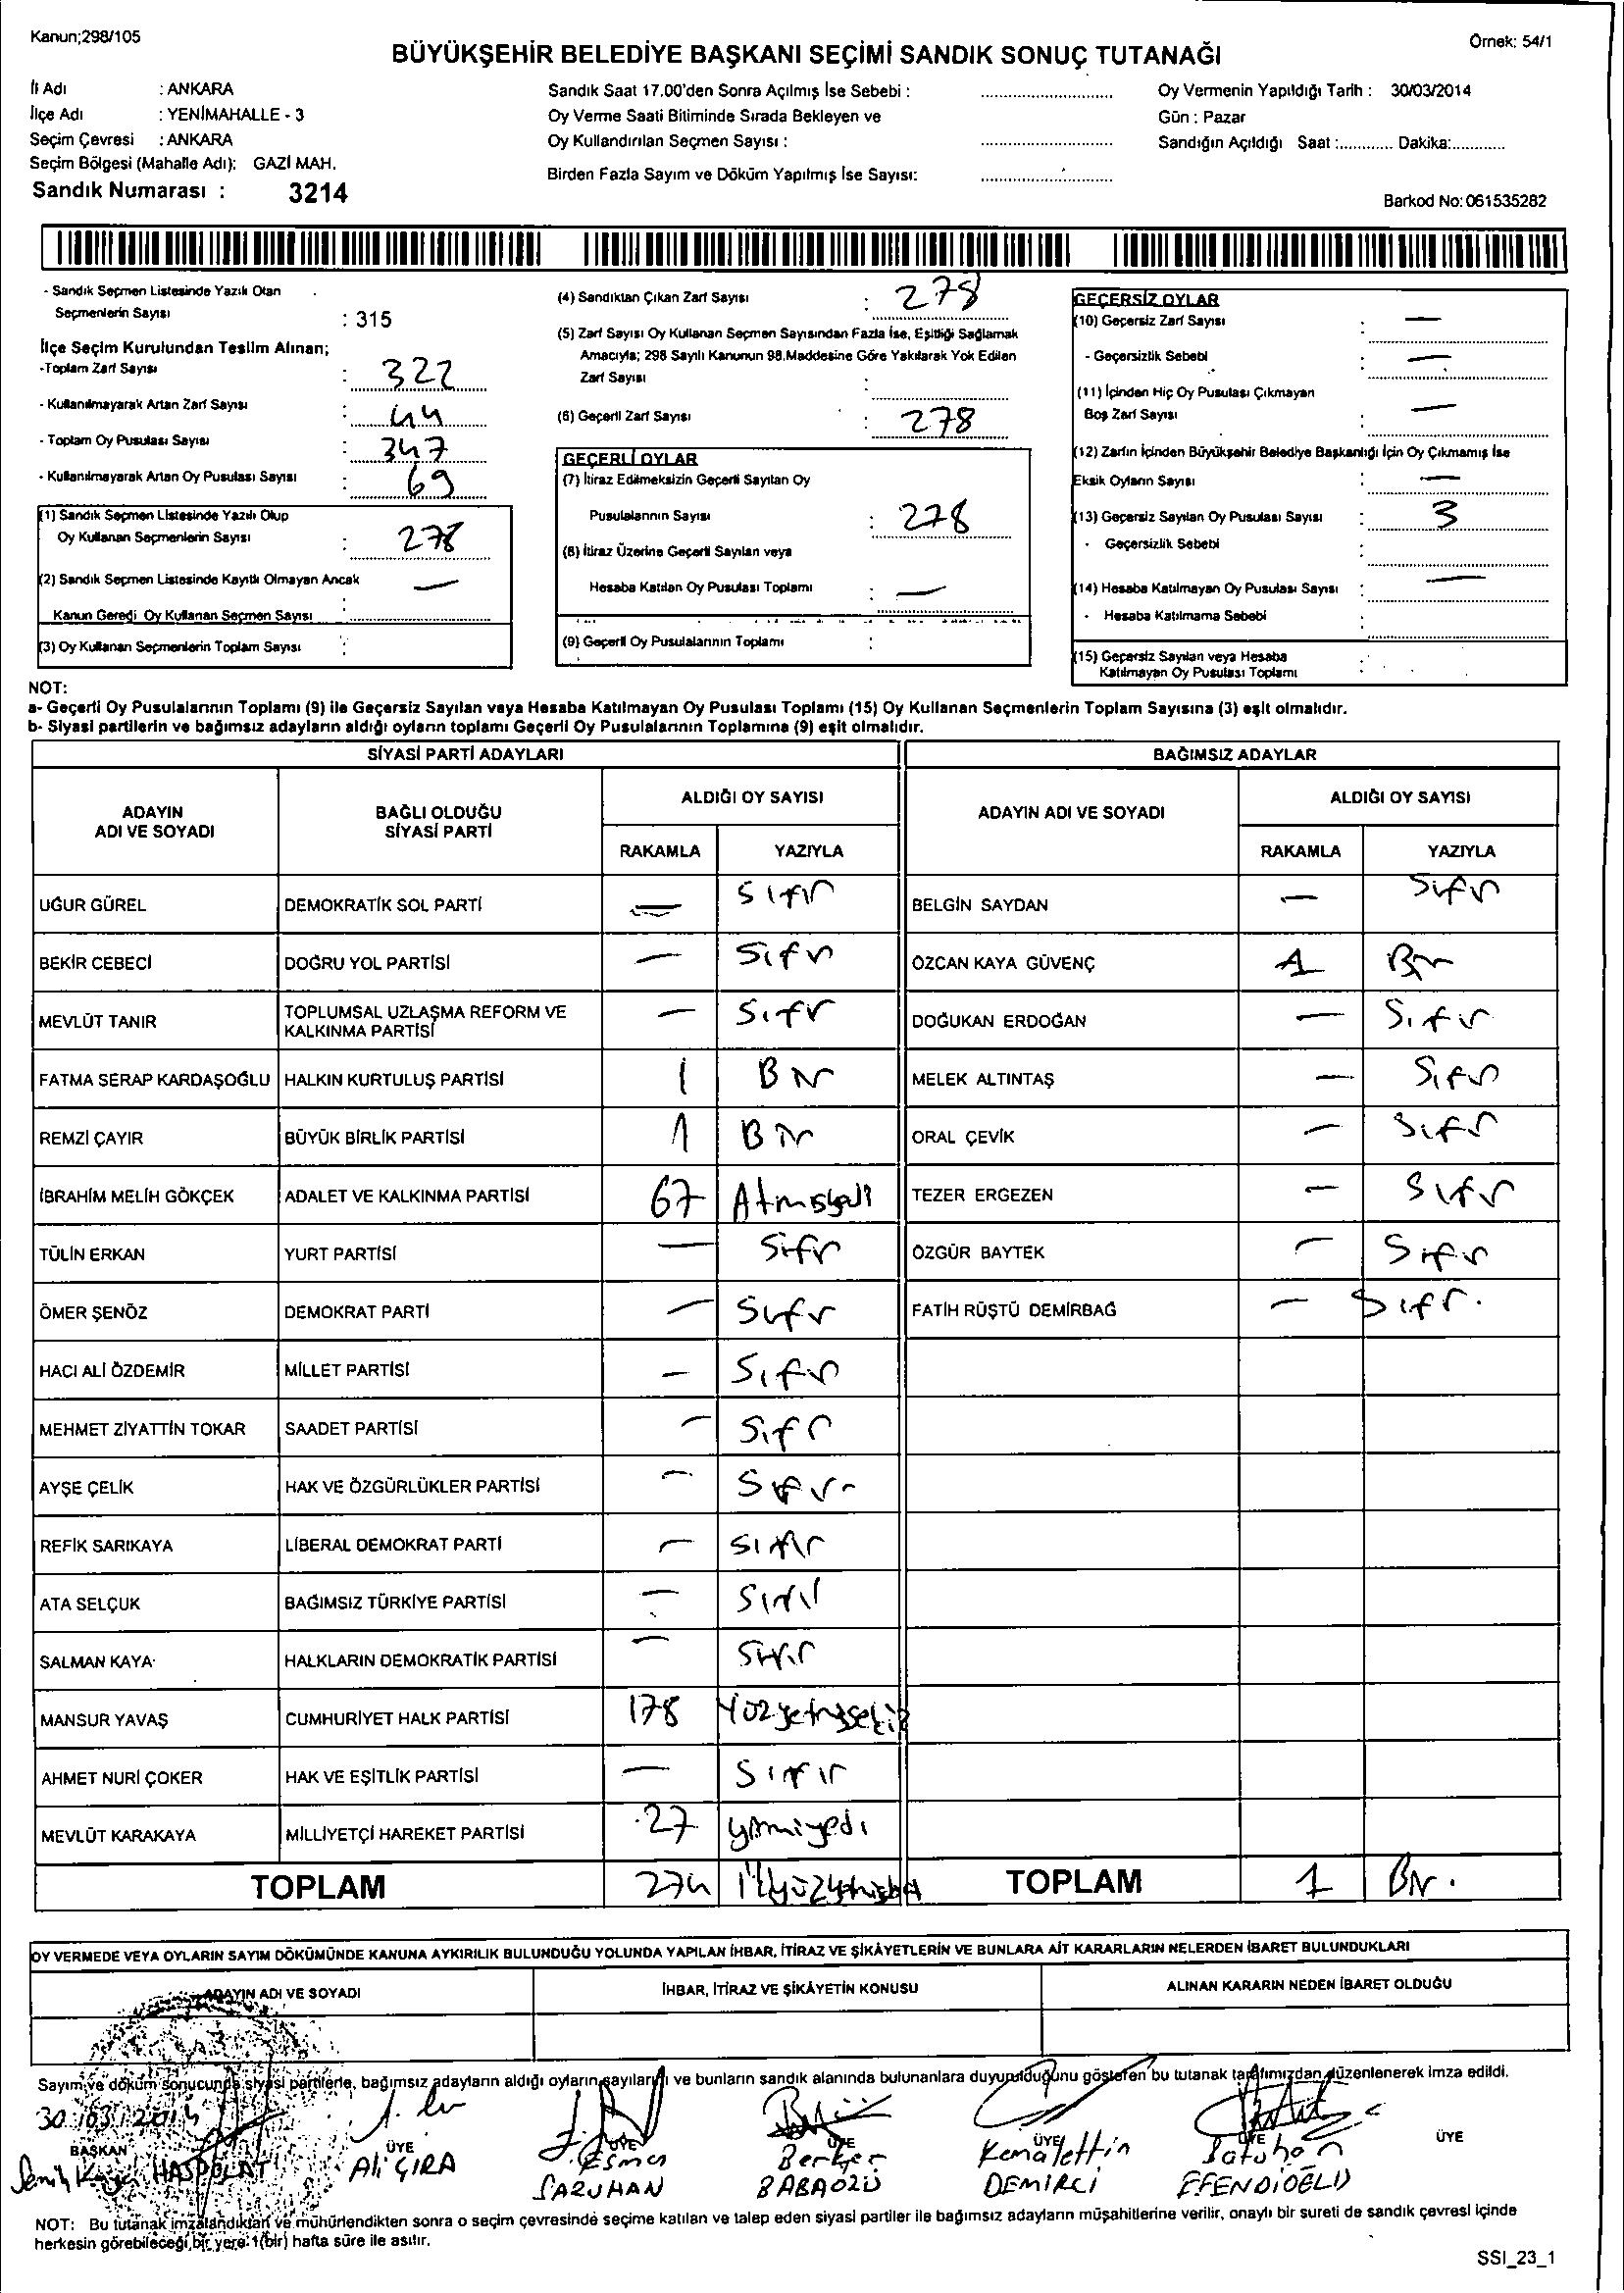 Kanun;298/105
Örnek: 54/1
BÜYÜKŞEHİR BELEDİYE BAŞKANI SEÇİMİ SANDIK SONUÇ TUTANAĞI
İl Adı : ANKARA
İlçe Adı : YENİMAHALLE - 3
Seçim Çevresi : ANKARA
Seçim Bölgesi (Mahalle Adı): GAZİ MAH.
Sandık Numarası : 3214
Sandık Saat 17.00'den Sonra Açılmış İse Sebebi :
Oy Verme Saati Bitiminde Sırada Bekleyen ve
Oy Kullandırılan Seçmen Sayısı :
Birden Fazla Sayım ve Döküm Yapılmış İse Sayısı:
Oy Vermenin Yapıldığı Tarih : 30/03/2014
Gün : Pazar
Sandığın Açıldığı Saat :............ Dakika:............
Barkod No: 061535282
- Sandık Seçmen Listesinde Yazılı Olan
Seçmenlerin Sayısı : 315
İlçe Seçim Kurulundan Teslim Alınan;
-Toplam Zarf Sayısı : 322
- Kullanılmayarak Artan Zarf Sayısı : 44
- Toplam Oy Pusulası Sayısı : 347
- Kullanılmayarak Artan Oy Pusulası Sayısı : 69
(1) Sandık Seçmen Listesinde Yazılı Olup
Oy Kullanan Seçmenlerin Sayısı : 278
(2) Sandık Seçmen Listesinde Kayıtlı Olmayan Ancak
Kanun Gereği Oy Kullanan Seçmen Sayısı : —
(3) Oy Kullanan Seçmenlerin Toplam Sayısı :
(4) Sandıktan Çıkan Zarf Sayısı : 278
(5) Zarf Sayısı Oy Kullanan Seçmen Sayısından Fazla İse, Eşitliği Sağlamak
Amacıyla; 298 Sayılı Kanunun 98.Maddesine Göre Yakılarak Yok Edilen
Zarf Sayısı :
(6) Geçerli Zarf Sayısı : 278
GEÇERLİ OYLAR
(7) İtiraz Edilmeksizin Geçerli Sayılan Oy
Pusulalarının Sayısı : 278
(8) İtiraz Üzerine Geçerli Sayılan veya
Hesaba Katılan Oy Pusulası Toplamı : —
(9) Geçerli Oy Pusulalarının Toplamı :
GEÇERSİZ OYLAR
(10) Geçersiz Zarf Sayısı : —
- Geçersizlik Sebebi : —
(11) İçinden Hiç Oy Pusulası Çıkmayan
Boş Zarf Sayısı : —
(12) Zarfın İçinden Büyükşehir Belediye Başkanlığı İçin Oy Çıkmamış İse
Eksik Oyların Sayısı : —
(13) Geçersiz Sayılan Oy Pusulası Sayısı : 3
- Geçersizlik Sebebi :
(14) Hesaba Katılmayan Oy Pusulası Sayısı : —
- Hesaba Katılmama Sebebi :
(15) Geçersiz Sayılan veya Hesaba
Katılmayan Oy Pusulası Toplamı :
NOT:
a- Geçerli Oy Pusulalarının Toplamı (9) ile Geçersiz Sayılan veya Hesaba Katılmayan Oy Pusulası Toplamı (15) Oy Kullanan Seçmenlerin Toplam Sayısına (3) eşit olmalıdır.
b- Siyasi partilerin ve bağımsız adayların aldığı oyların toplamı Geçerli Oy Pusulalarının Toplamına (9) eşit olmalıdır.
SİYASİ PARTİ ADAYLARI BAĞIMSIZ ADAYLAR
ADAYIN ADI VE SOYADI BAĞLI OLDUĞU SİYASİ PARTİ ALDIĞI OY SAYISI ADAYIN ADI VE SOYADI ALDIĞI OY SAYISI
RAKAMLA YAZIYLA RAKAMLA YAZIYLA
UĞUR GÜREL DEMOKRATİK SOL PARTİ — Sıfır BELGİN SAYDAN — Sıfır
BEKİR CEBECİ DOĞRU YOL PARTİSİ — Sıfır ÖZCAN KAYA GÜVENÇ 1 Bir
MEVLÜT TANIR TOPLUMSAL UZLAŞMA REFORM VE KALKINMA PARTİSİ — Sıfır DOĞUKAN ERDOĞAN — Sıfır
FATMA SERAP KARDAŞOĞLU HALKIN KURTULUŞ PARTİSİ 1 Bir MELEK ALTINTAŞ — Sıfır
REMZİ ÇAYIR BÜYÜK BİRLİK PARTİSİ 1 Bir ORAL ÇEVİK — Sıfır
İBRAHİM MELİH GÖKÇEK ADALET VE KALKINMA PARTİSİ 67 Atmışyedi TEZER ERGEZEN — Sıfır
TÜLİN ERKAN YURT PARTİSİ — Sıfır ÖZGÜR BAYTEK — Sıfır
ÖMER ŞENÖZ DEMOKRAT PARTİ — Sıfır FATİH RÜŞTÜ DEMİRBAĞ — Sıfır.
HACI ALİ ÖZDEMİR MİLLET PARTİSİ — Sıfır
MEHMET ZİYATTİN TOKAR SAADET PARTİSİ — Sıfır
AYŞE ÇELİK HAK VE ÖZGÜRLÜKLER PARTİSİ — Sıfır
REFİK SARIKAYA LİBERAL DEMOKRAT PARTİ — Sıfır
ATA SELÇUK BAĞIMSIZ TÜRKİYE PARTİSİ — Sıfır
SALMAN KAYA HALKLARIN DEMOKRATİK PARTİSİ — Sıfır
MANSUR YAVAŞ CUMHURİYET HALK PARTİSİ 178 Yüzyetmişsekiz
AHMET NURİ ÇOKER HAK VE EŞİTLİK PARTİSİ — Sıfır
MEVLÜT KARAKAYA MİLLİYETÇİ HAREKET PARTİSİ 27 yirmiyedi
TOPLAM 274 TOPLAM 1 Bir.
OY VERMEDE VEYA OYLARIN SAYIM DÖKÜMÜNDE KANUNA AYKIRILIK BULUNDUĞU YOLUNDA YAPILAN İHBAR, İTİRAZ VE ŞİKÂYETLERİN VE BUNLARA AİT KARARLARIN NELERDEN İBARET BULUNDUKLARI
ADAYIN ADI VE SOYADI İHBAR, İTİRAZ VE ŞİKÂYETİN KONUSU ALINAN KARARIN NEDEN İBARET OLDUĞU
Sayım ve döküm sonucunda siyasi partilerle, bağımsız adayların aldığı oyların sayılarını ve bunların sandık alanında bulunanlara duyurulduğunu gösteren bu tutanak tarafımızdan düzenlenerek imza edildi.
30/03/2014
BAŞKAN ÜYE ÜYE ÜYE ÜYE ÜYE ÜYE
HASPOLAT Ali ÇIRA Esma SARUHAN Berker BABAÖZÜ Kemalettin DEMİRCİ Batuhan EFENDİOĞLU
NOT: Bu tutanak imzalandıktan ve mühürlendikten sonra o seçim çevresinde seçime katılan ve talep eden siyasi partiler ile bağımsız adayların müşahitlerine verilir, onaylı bir sureti de sandık çevresi içinde
herkesin görebileceği bir yere 1(bir) hafta süre ile asılır.
SSI_23_1